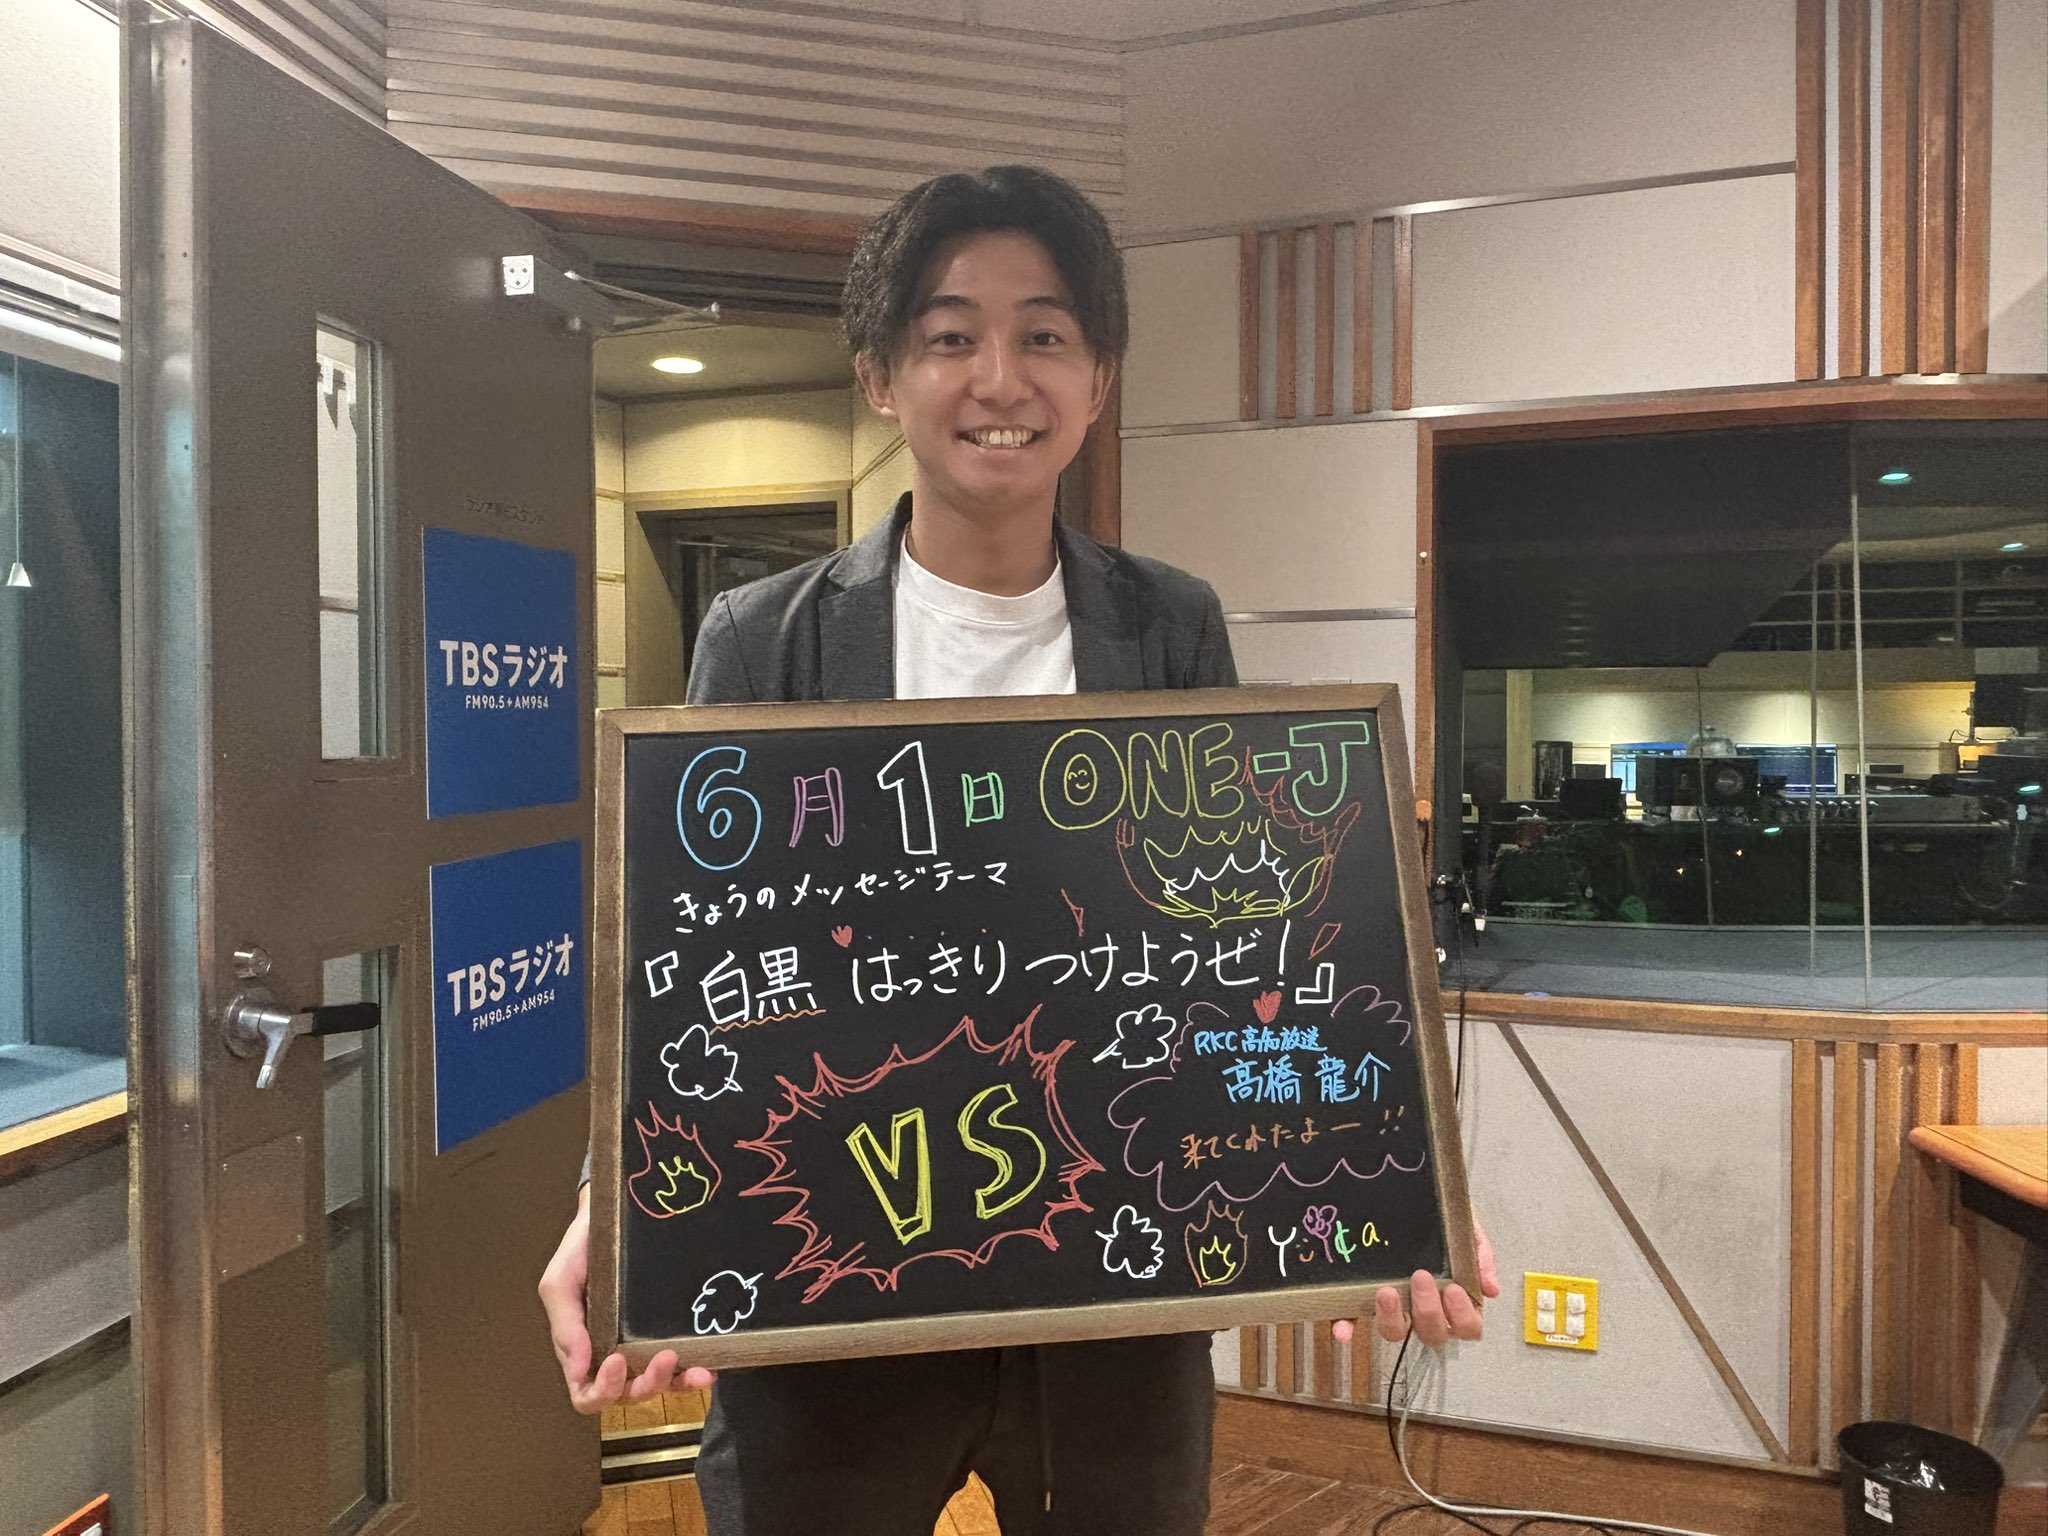 TBSラジオ
FM90.5+AM954
TBSラジオ
FM90.5+AM954
6月1日 ONE-J
きょうのメッセージテーマ
『白黒 はっきりつけようぜ!』
VS
RKC高知放送
高橋 龍介
来てくれたよー!!